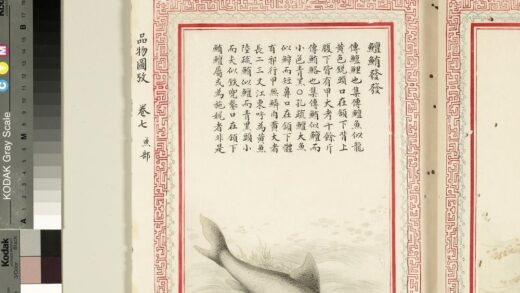 鱣鮪發發
傳鱣鯉也集傳鱣魚似龍
黃色銳頭口在頷下背上
腹下皆有甲大者千餘斤
傳鮪鮥也集傳鮪似鱣而
小色青黑〇孔疏鱣大魚
似鱏而短鼻口在頷下體
有邪行甲無鱗肉黃大者
長二三丈江東呼為黃魚
陸疏鮪似鱣而青黑頭小
而尖似鐵兜鍪口在頷下
鮪鱣屬或為施者非是
品物圖攷 卷七 魚部
KODAK Gray Scale
C Y M
Kodak